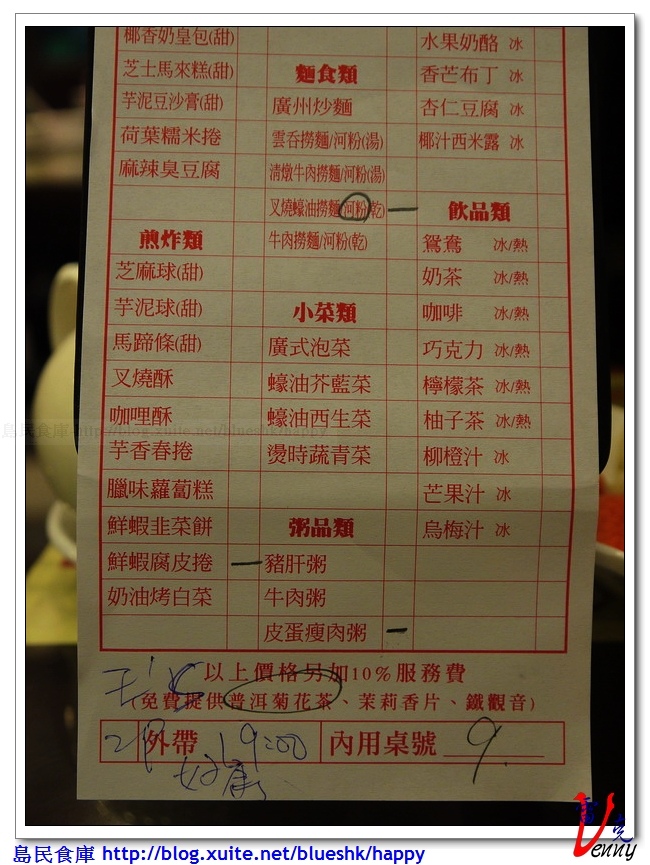 椰香奶皇包(甜)
芝士馬來糕(甜)
芋泥豆沙膏(甜)
荷葉糯米捲
麻辣臭豆腐
煎炸類
芝麻球(甜)
芋泥球(甜)
馬蹄條(甜)
叉燒酥
咖哩酥
芋香春捲
臘味蘿蔔糕
鮮蝦韭菜餅
鮮蝦腐皮捲
奶油烤白菜
麵食類
廣州炒麵
雲吞撈麵/河粉(湯)
清燉牛肉撈麵/河粉(湯)
叉燒蠔油撈麵/河粉(乾)
牛肉撈麵/河粉(乾)
小菜類
廣式泡菜
蠔油芥藍菜
蠔油西生菜
燙時蔬青菜
粥品類
豬肝粥
牛肉粥
皮蛋瘦肉粥
水果奶酪 冰
香芒布丁 冰
杏仁豆腐 冰
椰汁西米露 冰
飲品類
鴛鴦 冰/熱
奶茶 冰/熱
咖啡 冰/熱
巧克力 冰/熱
檸檬茶 冰/熱
柚子茶 冰/熱
柳橙汁 冰
芒果汁 冰
烏梅汁 冰
以上價格另加10%服務費
(免費提供普洱菊花茶、茉莉香片、鐵觀音)
外帶 19:00 內用桌號 9.
島民食庫 http://blog.xuite.net/blueshk/happy
島民食庫 http://blog.xuite.net/blueshk/happy
Venny